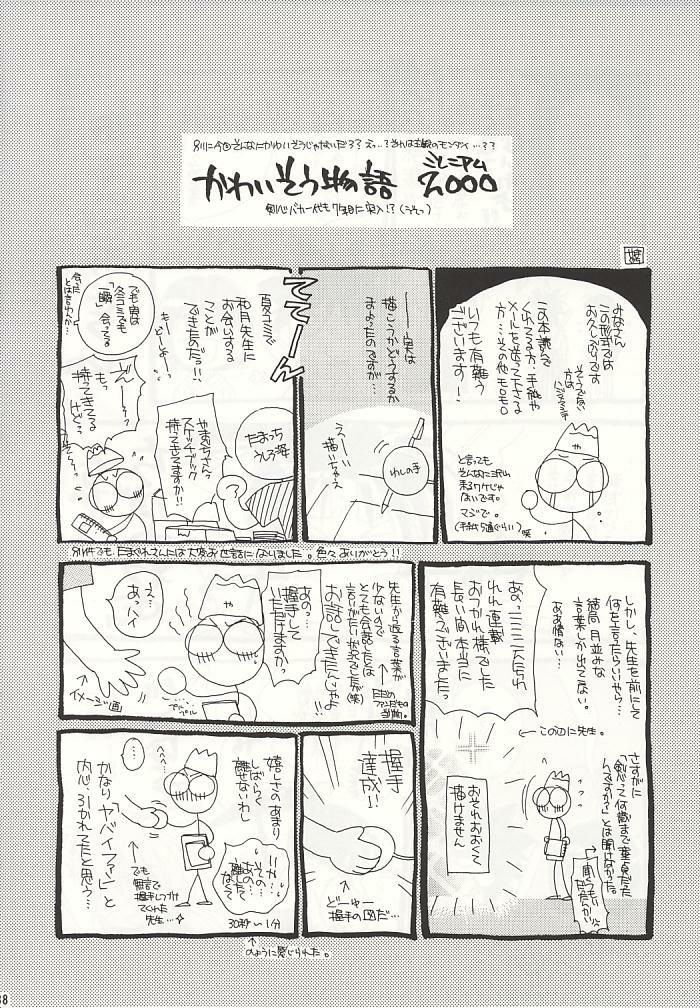 別に今回そんなにかわいそうじゃないだろ？えっ…？それは主観のモンダイ…？？
かわいそう物語
ミレニアム
2000
剣心バカ一代も7年目に突入！？（ごそっ）
みなさん
この形式では
お久しぶりです
そうでない
方は
ハジメマシテ
この本読んで
くれてる方・手紙や
メールを送って下さる
方…その他モロモロ
いつも有難う
ございます！
と言っても
そんなに沢山
来るワケじゃ
ないです。
マジで。
(手紙5通ぐらい)
笑
——実は
描こうかどうするか
まよったのですが…
え～い
描いちゃえ
わしの手
ててーん
夏コミで
和月先生に
お会いする
ことが
できたのだっ！！
でも実は
冬コミでも
「一瞬」会ってる
会った
とは言わん…
やまむちゃんっ
スケッチブック
持ってきてますか！！
えっ…
持ってきてる
けど…？
たまっち
うしろ姿
別件でも、たまぐれさんには大変お世話になりました。色々ありがとう！！
しかし、先生を前にして
何を言ったらいいやら…
結局 月並みな
言葉しか出てない。
ああ情ない…
あぁ、うっ
れれ連載
おつかれ様でした
長い間本当に
有難うございましたっ
←この辺に先生。
おそれおおくて
描けません
さすがに
「剣心って何歳まで童貞だった
んですか？」とは聞けなかった
聞くつもり
だったんかい
先生から返る言葉が
少ないので
とても会話したとは
言いがたい状況でしたが(笑)
お話しできたんじゃよ
ただの
ファンだもの
当然。
あのっ…
握手して
いただけますかっ
や
え…
あっハイ
イメージ画
プルプル
握手
達成！！
どーゆー
握手の図だ…
嬉しさのあまり
しばらく
離せないわし
その…
あの…
離したく
なくて
30秒～1分
↑
のように感じられた。
でも
無言で
握手しつづけ
てくれた
先生…
かなり「ヤバイファン」と
内心、引かれてたと思う…
38